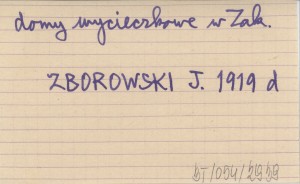 domy wycieczkowe w Zak.
ZBOROWSKI J. 1919 d
DT/054/2939